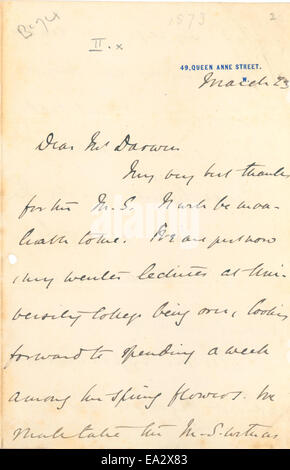 B-74
1873
2
II.x
49, QUEEN ANNE STREET.
W.
March 23
Dear Mr Darwin
My very best thanks
for the M.S. It will be inva-
luable to me. We are just now
, my winter lectures at Uni-
versity College being over, looking
forward to spending a week
among the spring flowers. We
shall take the M.S. with us
alamy
alamy stock photo
EA2X83